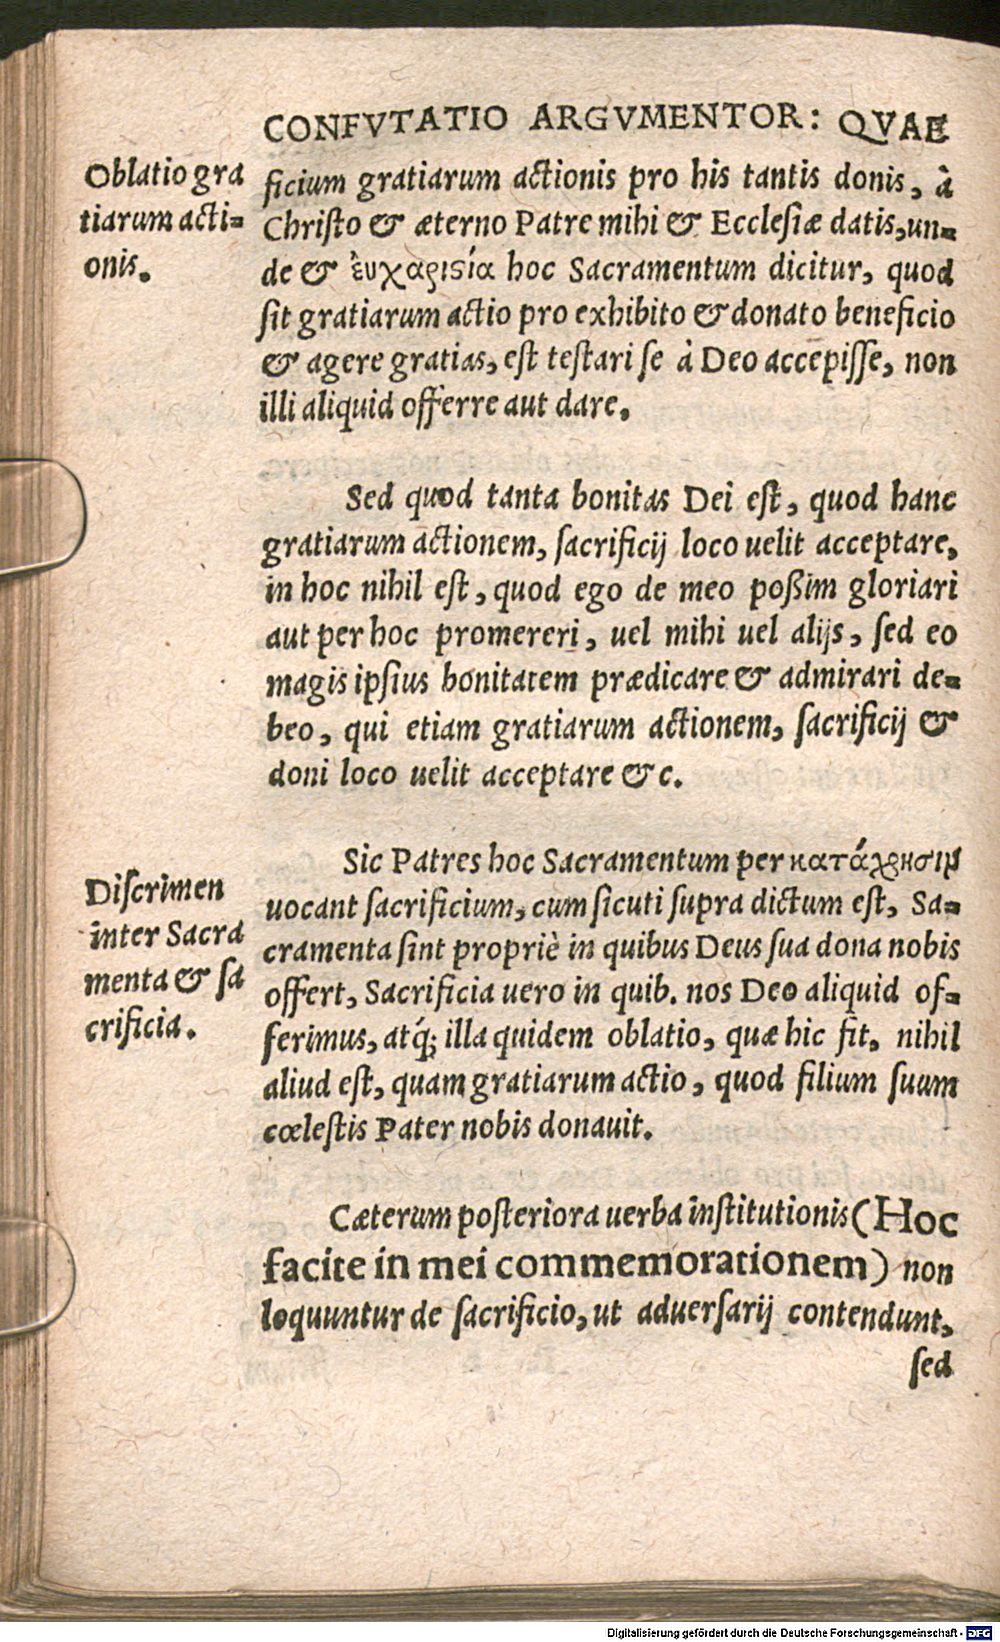 CONFVTATIO ARGVMENTOR: QVAE
Oblatio gra
tiarum acti-
onis.
ficium gratiarum actionis pro his tantis donis, à
Christo & æterno Patre mihi & Ecclesiæ datis, un-
de & ἐυχαριϛία hoc Sacramentum dicitur, quod
sit gratiarum actio pro exhibito & donato beneficio
& agere gratias, est testari se à Deo accepisse, non
illi aliquid offerre aut dare.
Sed quod tanta bonitas Dei est, quod hanc
gratiarum actionem, sacrificij loco uelit acceptare,
in hoc nihil est, quod ego de meo poßim gloriari
aut per hoc promereri, uel mihi uel alijs, sed eo
magis ipsius bonitatem prædicare & admirari de-
beo, qui etiam gratiarum actionem, sacrificij &
doni loco uelit acceptare &c.
Discrimen
inter Sacra
menta & sa
crificia.
Sic Patres hoc Sacramentum per κατάχρησιμ
uocant sacrificium, cum sicuti supra dictum est, Sa-
cramenta sint propriè in quibus Deus sua dona nobis
offert, Sacrificia uero in quib. nos Deo aliquid of-
ferimus, atq́; illa quidem oblatio, quæ hic fit, nihil
aliud est, quam gratiarum actio, quod filium suum
cœlestis Pater nobis donauit.
Cæterum posteriora uerba institutionis (Hoc
facite in mei commemorationem) non
loquuntur de sacrificio, ut aduersarij contendunt,
sed
Digitalisierung gefördert durch die Deutsche Forschungsgemeinschaft - DFG